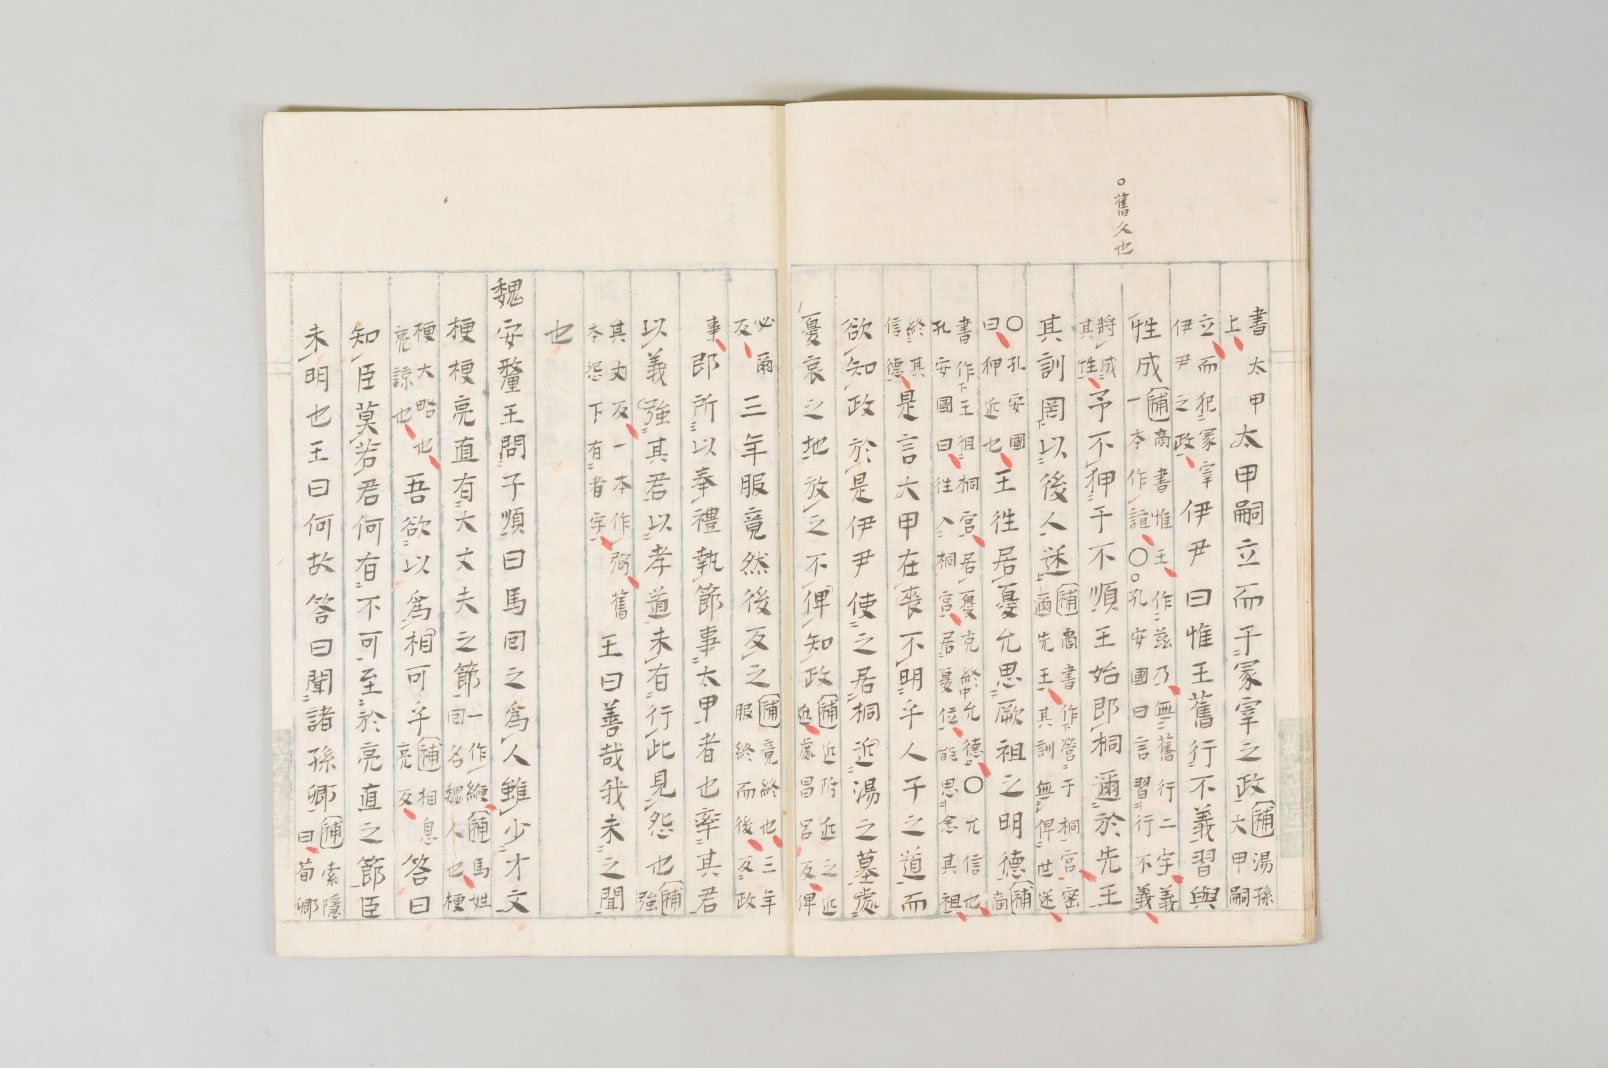 ○舊久也
書上太甲太甲嗣立而于冢宰之政補湯孫大甲嗣
立而犯冢宰伊尹之政伊尹曰惟王舊行不義習與
性成補商書惟王作茲乃無舊行二字義一本作誼○孔安國曰言習行不義
將成其性予不狎于不順王始即桐邇於先王
其訓罔以後人迷補商書作營于桐宮密邇先王其訓無俾世迷
○孔安國曰狎近也王徃居憂允思厥祖之明德補商
書作王徂桐宮居憂克終允德○允信也孔安國曰徃入桐宮居憂位能思念其祖
終其信德是言大甲在喪不明乎人子之道而
欲知政於是伊尹使之居桐近湯之墓處
憂哀之地放之不俾知政補近附近之近近處昌呂反俾
必爾反三年服竟然後反之補竟終也三年服終而後反政
事即所以奉禮執節事太甲者也率其君
以義強其君以孝道未有行此見怨也補強
其丈反一本作弼舊本怨下有者字王曰善哉我未之聞
也
魏安釐王問子順曰馬回之爲人雖少才文
梗梗亮直有大丈夫之節一作緶補馬姓回名魏人也梗
梗大略也亮諒也吾欲以爲相可乎補相息亮反答曰
知臣莫若君何有不可至於亮直之節臣
未明也王曰何故答曰聞諸孫卿補索隱曰荀卿